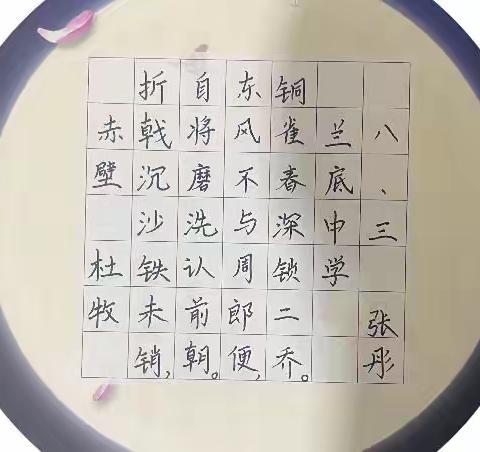 赤壁 杜牧
折戟沉沙铁未销,
自将磨洗认前朝。
东风不与周郎便,
铜雀春深锁二乔。
兰底中学
八、三 张彤